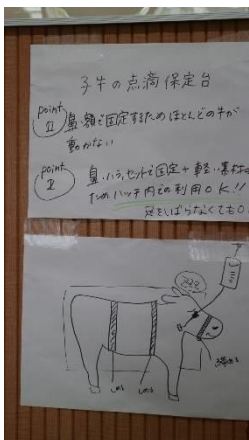 子牛の点滴保定台
point 1 鼻・額で固定するためほとんどの牛が
動かない
point 2 鼻・ハラ、セットで固定+軽い素材の
ためハッチ内での利用OK!!
足をしばらなくてもO
しめる しめる